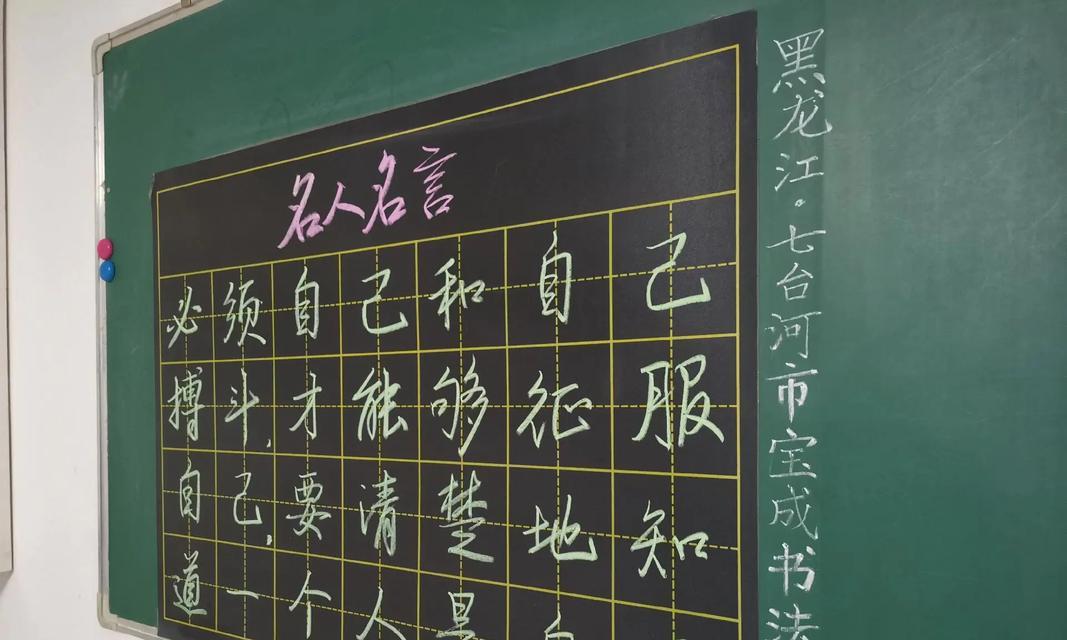 名人名言
必须自己和自己
搏斗,才能够征服
自己,要清楚地知
道一个人是
黑龙江·七台河市宝成书法